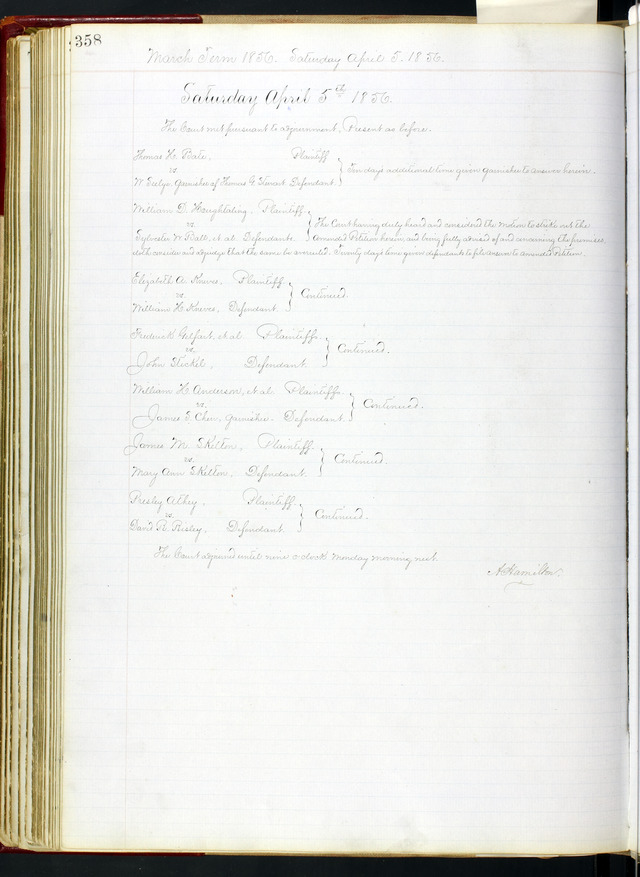 358
March Term 1856. Saturday April 5. 1856.
Saturday April 5th 1856.
The Court met pursuant to adjournment, Present as before.
Thomas H. Bate, Plaintiff
vs.
W. Seelye, garnishee of Thomas G. Stewart Defendant. } Ten days additional time given garnishee to answer herein.
William D. Houghtaling, Plaintiff.
vs. } The Court having duly heard and considered the motion to strike out the
Sylvester W. Ball, et al. Defendants. amended Petition herein, and being fully advised of and concerning the premises
doth consider and adjudge that the same be overruled. Twenty days time given defendants to file answer to amended Petition.
Elizabeth A. Knives. Plaintiff
vs. } Continued.
William H. Knives, Defendant.
Frederick et al Plaintiffs.
vs. } Continued.
John Stickel, Defendant.
William H. Anderson, et al. Plaintiffs.
vs. } Continued.
James S. Chew, garnishee. Defendant.
James M. Skelton, Plaintiff.
vs. } Continued.
Mary Ann Skelton, Defendant.
Presley Athey, Plaintiff.
vs. } Continued.
David R. Risley, Defendant.
The Court adjourned until nine o clock Monday morning next.
A Hamilton.